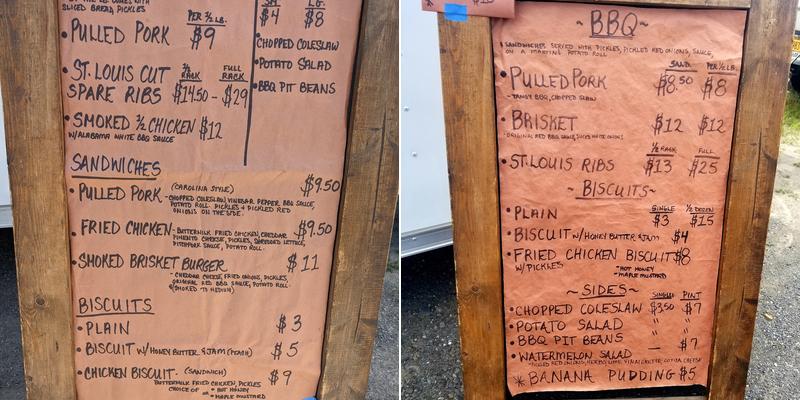 SLICED BREAD PICKLES
PER ½ LB.
• PULLED PORK $9
• ST. LOUIS CUT ½ RACK FULL RACK
SPARE RIBS $14.50 - $29
• SMOKED ½ CHICKEN $12
W/ALABAMA WHITE BBQ SAUCE
LG.
$4 $8
• CHOPPED COLESLAW
• POTATO SALAD
• BBQ PIT BEANS
SANDWICHES
• PULLED PORK (CAROLINA STYLE) $9.50
- CHOPPED COLESLAW, VINEGAR PEPPER BBQ SAUCE,
POTATO ROLL. PICKLES & PICKLED RED
ONIONS ON THE SIDE.
• FRIED CHICKEN - BUTTERMILK FRIED CHICKEN, CHEDDAR $9.50
PIMENTO CHEESE, PICKLES, SHREDDED LETTUCE,
PITCHFORK SAUCE, POTATO ROLL.
• SMOKED BRISKET BURGER $11
- CHEDDAR CHEESE, FRIED ONIONS, PICKLES,
ORIGINAL RED BBQ SAUCE, POTATO ROLL
(SMOKED TO MEDIUM)
BISCUITS
• PLAIN $3
• BISCUIT W/HONEY BUTTER, & JAM (PEACH) $5
• CHICKEN BISCUIT (SANDWICH) $9
BUTTERMILK FRIED CHICKEN, PICKLES
CHOICE OF - • HOT HONEY
OR • MAPLE MUSTARD
~ BBQ ~
SANDWICHES SERVED WITH PICKLES, PICKLED RED ONIONS, SAUCE,
ON A MARTINS POTATO ROLL
SAND. PER ½ LB.
• PULLED PORK $8.50 $8
- TANGY BBQ, CHOPPED SLAW
• BRISKET $12 $12
½ RACK FULL
• ST. LOUIS RIBS $13 $25
~ BISCUITS ~
SINGLE ½ DOZEN
• PLAIN $3 $15
• BISCUIT W/HONEY BUTTER, & JAM $4
• FRIED CHICKEN BISCUIT $8
W/PICKLES • HOT HONEY
• MAPLE MUSTARD
~ SIDES ~ SINGLE PINT
• CHOPPED COLESLAW $3.50 $7
• POTATO SALAD " "
• BBQ PIT BEANS " "
• WATERMELON SALAD — $7
* BANANA PUDDING $5